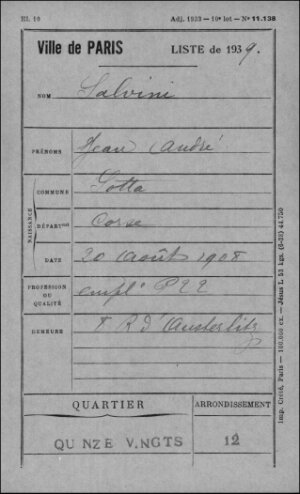 El. 10 Adj. 1933 — 10e lot — No 11.138
Ville de PARIS LISTE de 1939.
NOM Salvini
PRÉNOMS Jean André
NAISSANCE
COMMUNE Sotta
DÉPARTnt Corse
DATE 20 Août 1908
PROFESSION OU QUALITÉ empl
DEMEURE 8 R d'Austerlitz
QUARTIER ARRONDISSEMENT
QU NZE V.NGTS 12
Imp. Crété, Paris — 100.000 ex. — Jésus L 53 kgs. (6-33) 44.750